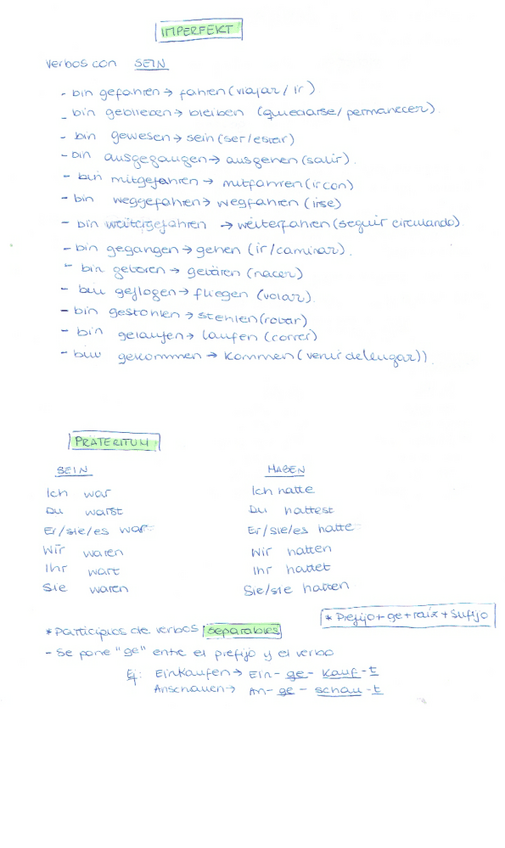 IMPERFEKT
verbos con SEIN
- bin gefahren → fahren (viajar / ir)
- bin geblieben → bleiben (quedarse / permanecer)
- bin gewesen → sein (ser/estar)
- bin ausgegangen → ausgehen (salir).
- bin mitgefahren → mitfahren (ir con)
- bin weggefahren → wegfahren (irse)
- bin weitergefahren → weiterfahren (seguir circulando).
- bin gegangen → gehen (ir / caminar).
- bin geboren → gebären (nacer)
- bin geflogen → fliegen (volar).
- bin gestohlen → stehlen (robar)
- bin gelaufen → laufen (correr)
- bin gekommen → kommen (venir de (lugar)).
PRÄTERITUM
SEIN HABEN
Ich war Ich hatte
Du warst Du hattest
Er/sie/es war Er/sie/es hatte
Wir waren Wir hatten
Ihr wart Ihr hattet
Sie waren Sie/sie hatten
* Prefijo + ge + raíz + sufijo
* Participios de verbos separables
- Se pone "ge" entre el prefijo y el verbo
Ej: Einkaufen → Ein - ge - kauf - t
Anschauen → An - ge - schau - t